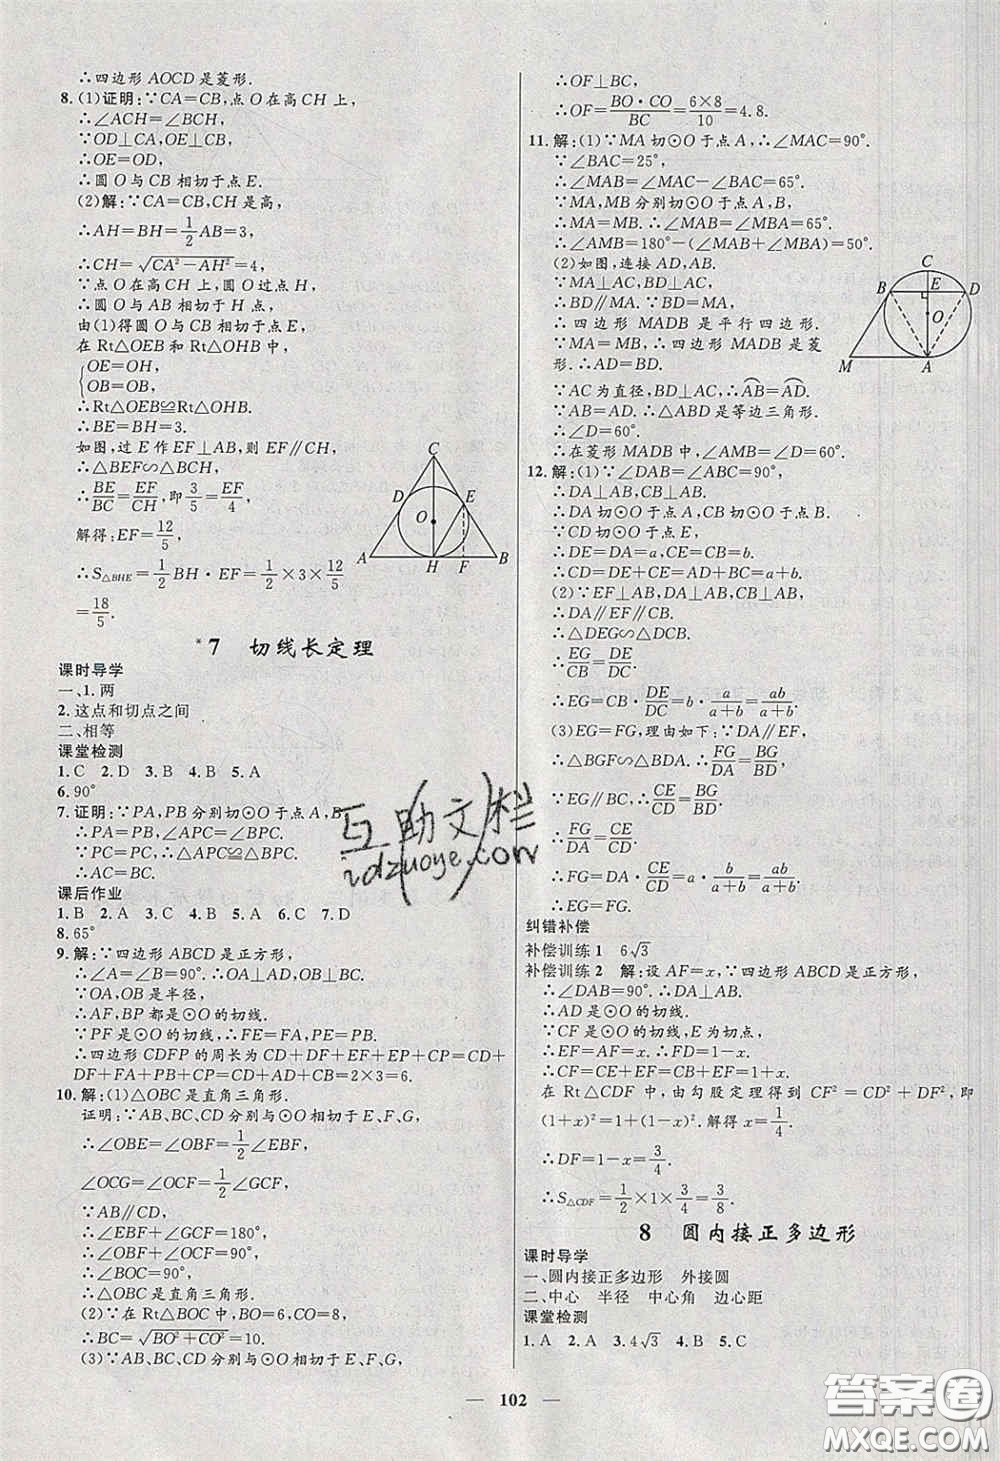 ∴四边形 AOCD 是菱形.
8. (1)证明:∵CA=CB,点 O 在高 CH 上,
∴∠ACH=∠BCH.
∵OD⊥CA,OE⊥CB,
∴OE=OD,
∴圆 O 与 CB 相切于点 E.
(2)解:∵CA=CB,CH 是高,
∴AH=BH=1/2AB=3,
∴CH=√(CA²-AH²)=4,
∵点 O 在高 CH 上,圆 O 过点 H,
∴圆 O 与 AB 相切于 H 点,
由(1)得圆 O 与 CB 相切于点 E,
在 Rt△OEB 和 Rt△OHB 中,
{OE=OH,
OB=OB,
∴Rt△OEB≌Rt△OHB.
∴BE=BH=3.
如图,过 E 作 EF⊥AB,则 EF∥CH,
∴△BEF∽△BCH,
∴BE/BC=EF/CH,即 3/5=EF/4,
解得:EF=12/5,
∴S△BHE=1/2BH·EF=1/2×3×12/5
=18/5.
C
D E
O
A H F B
*7 切线长定理
课时导学
一、1.两
2. 这点和切点之间
二、相等
课堂检测
1. C 2. D 3. B 4. B 5. A
6. 90°
7. 证明:∵PA,PB 分别切⊙O 于点 A,B,
∴PA=PB,∠APC=∠BPC.
∵PC=PC,∴△APC≌△BPC.
∴AC=BC.
课后作业
1. B 2. A 3. A 4. A 5. A 6. C 7. D
8. 65°
9. 解:∵四边形 ABCD 是正方形,
∴∠A=∠B=90°.∴OA⊥AD,OB⊥BC.
∵OA,OB 是半径,
∴AF,BP 都是⊙O 的切线.
∵PF 是⊙O 的切线,∴FE=FA,PE=PB.
∴四边形 CDFP 的周长为 CD+DF+EF+EP+CP=CD+
DF+FA+PB+CP=CD+AD+BC=2×3=6.
10. 解:(1)△OBC 是直角三角形.
证明:∵AB,BC,CD 分别与⊙O 相切于 E、F、G,
∴∠OBE=∠OBF=1/2∠EBF,
∠OCG=∠OCF=1/2∠GCF,
∵AB∥CD,
∴∠EBF+∠GCF=180°,
∴∠OBF+∠OCF=90°,
∴∠BOC=90°,
∴△OBC 是直角三角形.
(2)∵在 Rt△BOC 中,BO=6,CO=8,
∴BC=√(BO²+CO²)=10.
(3)∵AB、BC、CD 分别与⊙O 相切于 E、F、G,
∴OF⊥BC,
∴OF=BO·CO/BC=6×8/10=4.8.
11. 解:(1)∵MA 切⊙O 于点 A,∴∠MAC=90°.
∵∠BAC=25°,
∴∠MAB=∠MAC-∠BAC=65°.
∵MA,MB 分别切⊙O 于点 A,B,
∴MA=MB.∴∠MAB=∠MBA=65°.
∴∠AMB=180°-(∠MAB+∠MBA)=50°.
(2)如图,连接 AD,AB.
∵MA⊥AC,BD⊥AC,
∴BD∥MA.∵BD=MA,
∴四边形 MADB 是平行四边形.
∵MA=MB,∴四边形 MADB 是菱
形.∴AD=BD.
∵AC 为直径,BD⊥AC,∴AB=AD.
∵AB=AD.∴△ABD 是等边三角形.
∴∠D=60°.
∴在菱形 MADB 中,∠AMB=∠D=60°.
C
B E D
O
M A
12. 解:(1)∵∠DAB=∠ABC=90°,
∴DA⊥AB,CB⊥AB.
∴DA 切⊙O 于点 A,CB 切⊙O 于点 B.
∵CD 切⊙O 于点 E,
∴DE=DA=a,CE=CB=b.
∴CD=DE+CE=AD+BC=a+b.
(2)∵EF⊥AB,DA⊥AB,CB⊥AB,
∴DA∥EF∥CB.
∴△DEG∽△DCB.
∴EG/CB=DE/DC.
∴EG=CB·DE/DC=b·a/(a+b)=ab/(a+b).
(3)EG=FG,理由如下:∵DA∥EF,
∴△BFG∽△BDA.∴FG/DA=BG/BD.
∵EG∥BC,∴CE/CD=BG/BD.
∴FG/DA=CE/CD.
∴FG=DA·CE/CD=a·b/(a+b)=ab/(a+b).
∴EG=FG.
纠错补偿
补偿训练 1 6√3
补偿训练 2 解:设 AF=x,∵四边形 ABCD 是正方形,
∴∠DAB=90°.∴DA⊥AB.
∴AD 是⊙O 的切线.
∵CF 是⊙O 的切线,E 为切点,
∴EF=AF=x.∴FD=1-x.
∴CF=CE+EF=CB+EF=1+x.
在 Rt△CDF 中,由勾股定理得到 CF²=CD²+DF²,即
(1+x)²=1+(1-x)².解得 x=1/4.
∴DF=1-x=3/4.
∴S△CDF=1/2×1×3/4=3/8.
8 圆内接正多边形
课时导学
一、圆内接正多边形 外接圆
二、中心 半径 中心角 边心距
课堂检测
1. A 2. A 3. 4√3 4. B 5. C
102
互助文档
idzuoye.com
答案圈
MXQE.COM